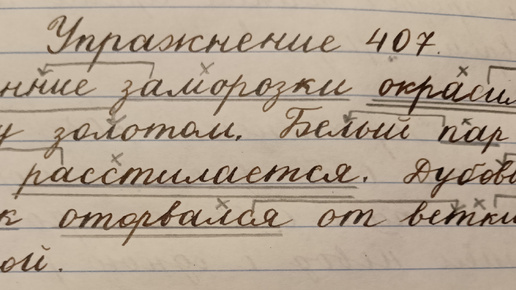 Упражнение 407.
нние заморозки окрасил
у золотом. Белый пар
расстилается. Дубовы
к оторвался от ветки
ой.